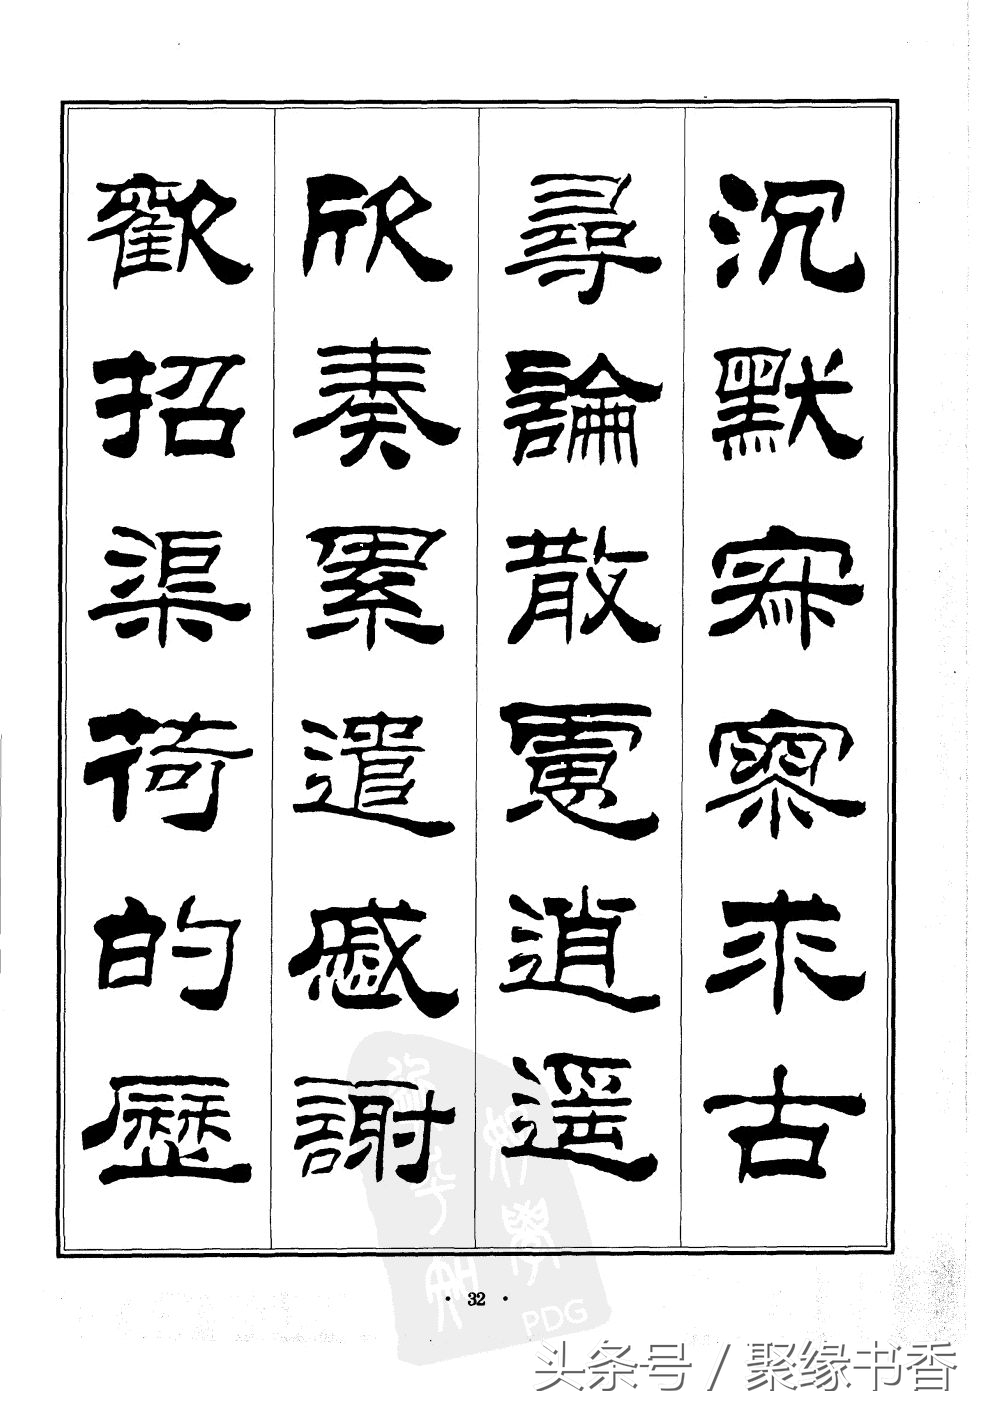 沉默寂寥求古
尋論散慮逍遥
欣奏累遣慼謝
歡招渠荷的歷
· 32 ·
PDG
头条号 / 聚缘书香